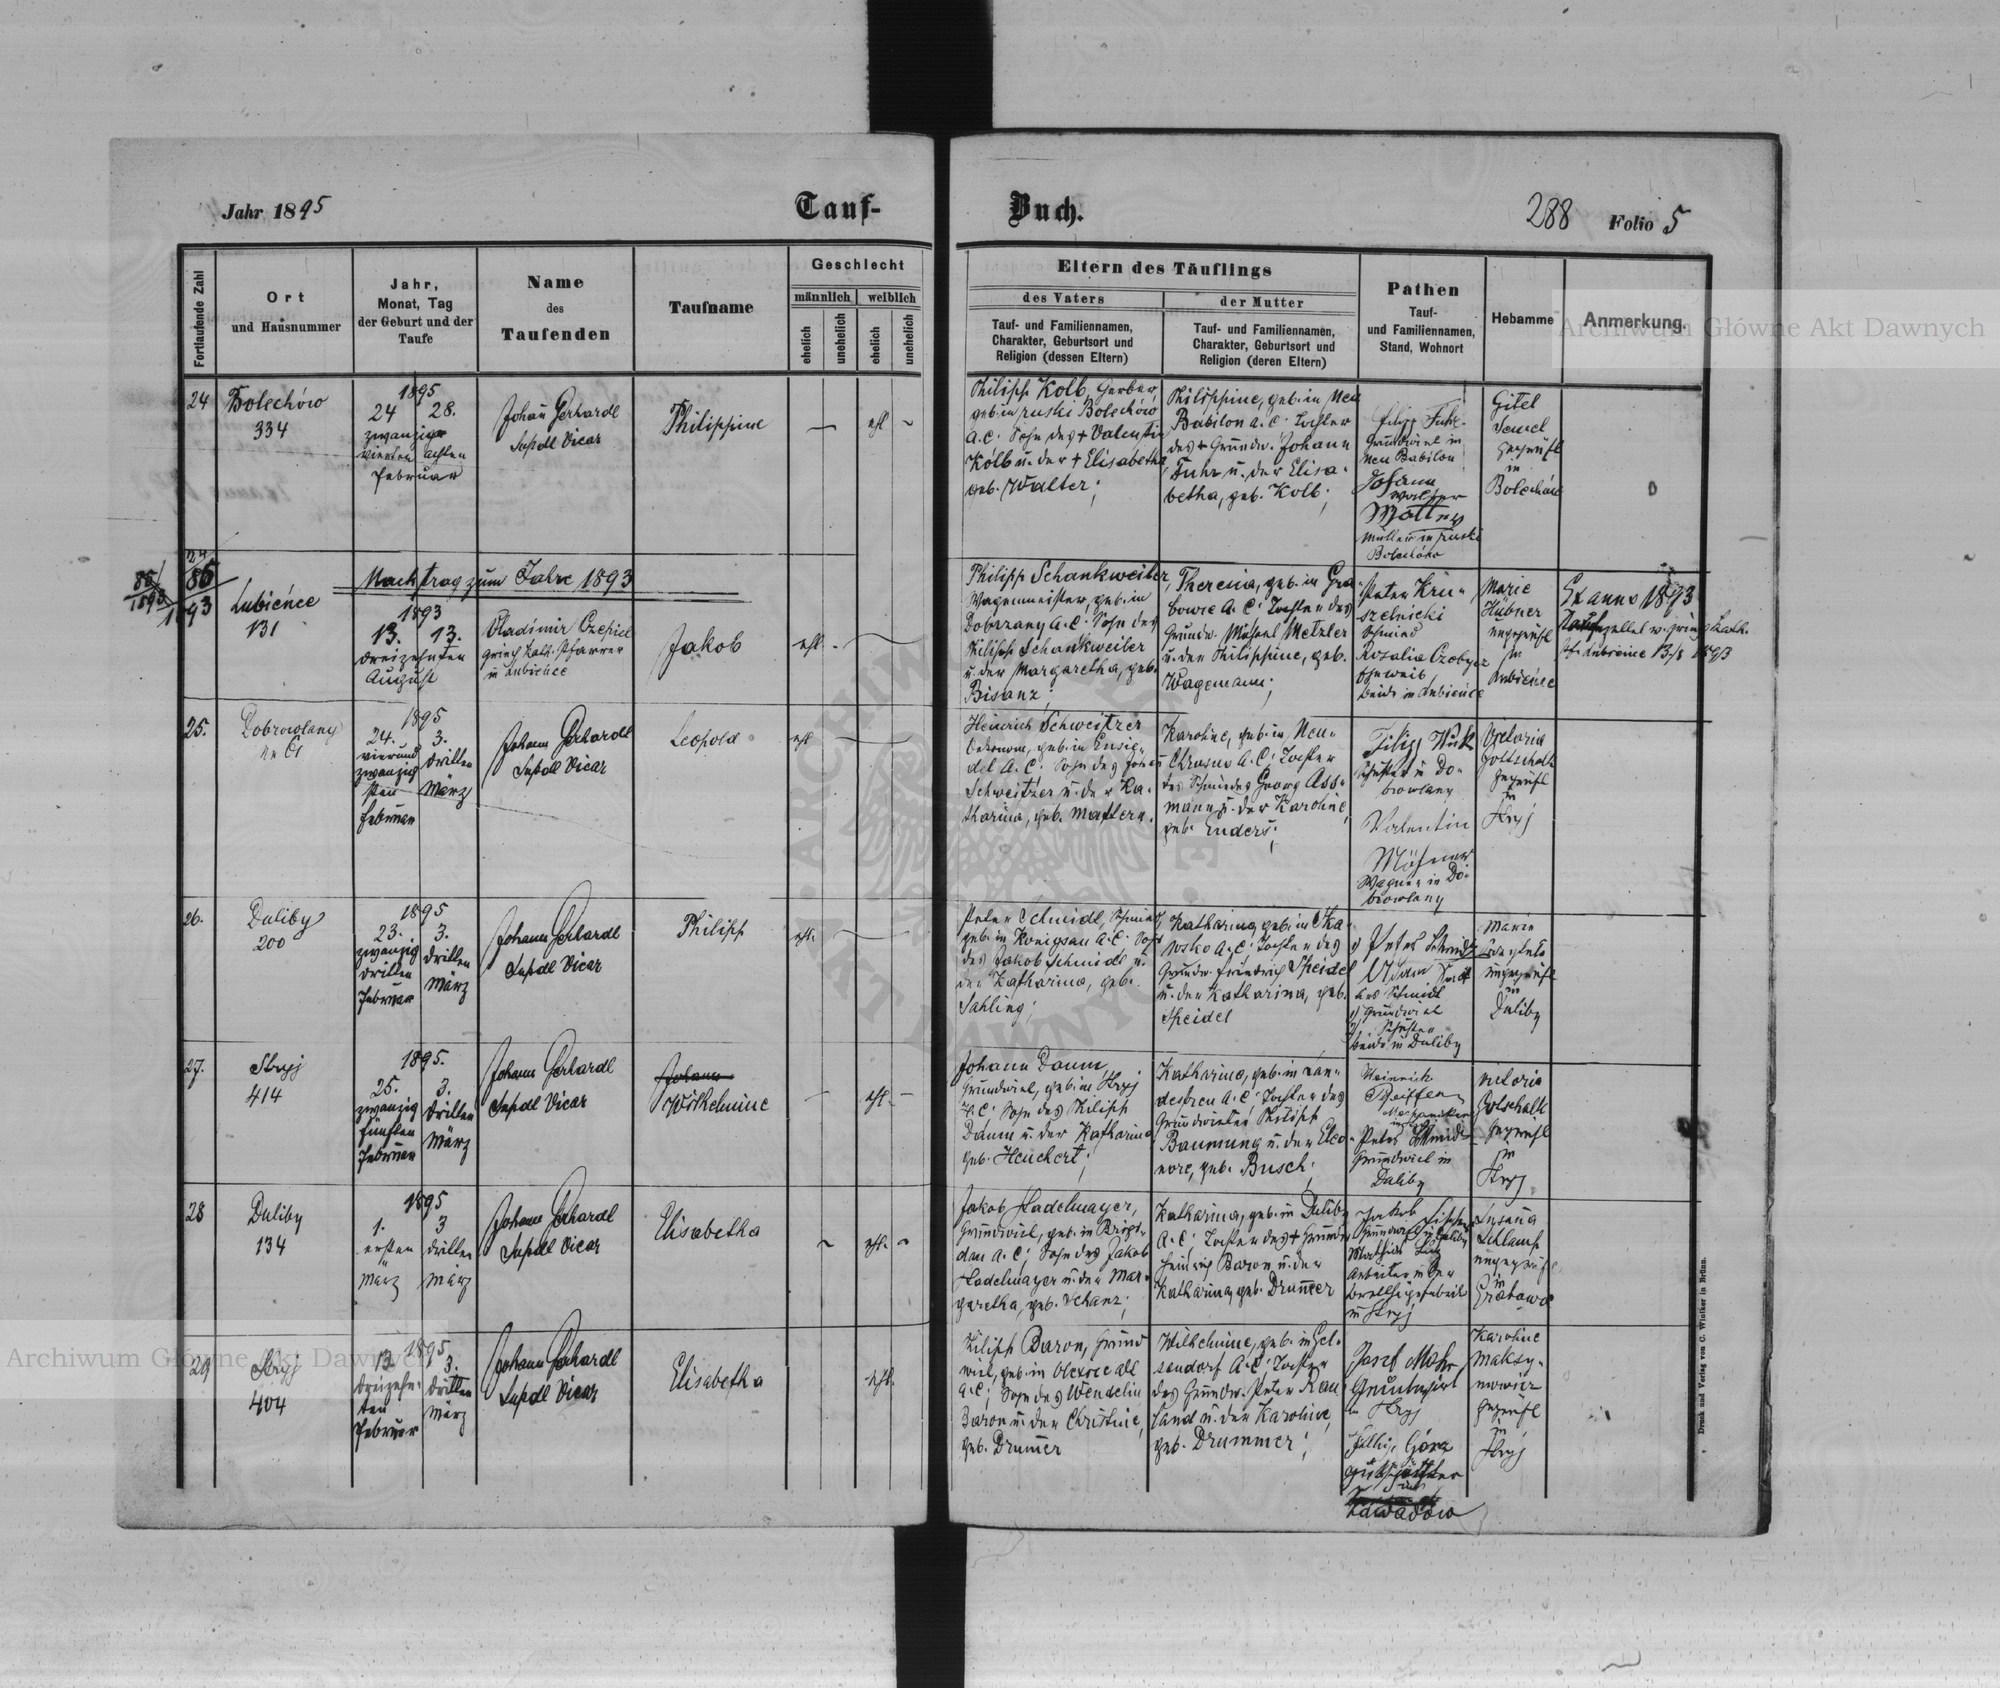 Jahr 1895
Tauf-
Buch.
288
Folio 5
Fortlaufende Zahl
Ort
und Hausnummer
Jahr,
Monat, Tag
der Geburt und der
Taufe
Name
des
Taufenden
Taufname
Geschlecht
männlich
weiblich
ehelich
unehelich
ehelich
unehelich
Eltern des Täuflings
des Vaters
der Mutter
Tauf- und Familiennamen,
Charakter, Geburtsort und
Religion (dessen Eltern)
Tauf- und Familiennamen,
Charakter, Geburtsort und
Religion (deren Eltern)
Pathen
Tauf-
und Familiennamen,
Stand, Wohnort
Hebamme
Anmerkung.
24
Bolechów
334
1895
24 28.
zwanzig
vierten achten
Februar
Johann Gerhardt
Supdl Vicar
Philippine
ehl
Philipp Kolb, Gerber,
geb. in ruski Bolechów
A.C. Sohn des + Valentin
Kolb u. der + Elisabetha
geb. Walter;
Philippine, geb. in Neu
Babilon A.C. Tochter
des + Grundw. Johann
Fuhr u. der Elisa-
betha, geb. Kolb;
Filipp Fuhr
Grundwirt in
Neu Babilon
Johann
Walter
Müller in ruski
Bolechów
Gitel
geprüft
in
Bolechów
86
1893
Lubieńce
131
Nachtrag zum Jahre 1893
1893
13. 13.
dreizehnten
August
Vladimir Czepiel
griech. kath. Pfarrer
in Lubience
Jakob
ehl.
Philipp Schankweiler,
Wagenmeister, geb. in
Dobrzany A.C. Sohn des
Philipp Schankweiler
u. der Margaretha, geb.
Bisanz;
Theresia, geb. in Gra-
bowce A.C. Tochter des
Grundw. Michael Metzler
u. der Philippine, geb.
Wagemann;
Peter Kru-
szelnicki
Schmied
Rosalia
Eheweib,
beide in Lubience
Marie
Hübner
ungeprüft
in
Lubieńce
Ex anno 1893
Lubience 13/8 1893
25.
Dobrowlany
1895
24. 3.
vierund dritten
zwanzig
sten März
Februar
Johann Gerhardt
Supdl Vicar
Leopold
ehl
Heinrich Schweitzer
Oekonom, geb. in Ensig-
del A.C. Sohn des Johann
Schweitzer u. der Ka-
tharina, geb. Mattern.
Karoline, geb. in Neu-
Chrusno A.C. Tochter
des Schmiedes Georg Ass-
mann u. der Karoline,
geb. Enders;
Filipp
Schuster in Do-
browlany
Valentin
Wagner in Do-
browlany
Victoria
Gottschalk
geprüft
in
Stryj
26.
Duliby
200
1895
23. 3.
zwanzig dritten
dritten März
Februar
Johann Gerhardt
Supdl Vicar
Philipp
ehl.
Peter Schmidt, Schmied
geb. in Königsau A.C. Sohn
des Jakob Schmidt u.
der Katharina, geb.
Sahling;
Katharina, geb. in Ska-
A.C. Tochter des
Grundw. Friedrich Speidel
u. der Katharina, geb.
Speidel
Peter Schmidt
Schmidt
Grundwirt
Schuster
beide in Duliby
Marie
ungeprüft
in
Duliby
27.
Stryj
414
1895.
25. 3.
zwanzig dritten
fünften März
Februar
Johann Gerhardt
Supdl Vicar
Johann
Wilhelmine
ehl.
Johann Daum
Grundwirt, geb. in Stryj
A.C. Sohn des Philipp
Daum u. der Katharina
geb. Heuchert;
Katharina, geb. in Lan-
destreu A.C. Tochter des
Grundwirtes Philipp
Baumung u. der Eleo-
nore, geb. Busch;
Heinrich
Pfeiffer
Mechaniker
Peter Schmidt
Grundwirt in
Duliby
Victoria
Gotschalk
geprüft
in
Stryj
28
Duliby
134
1895
1. 3
ersten dritten
März März
Johann Gerhardt
Supdl Vicar
Elisabetha
ehl.
Jakob Hadelmayer,
Grundwirt, geb. in Brigi-
dau A.C. Sohn des Jakob
Hadelmayer u. der Mar-
garetha, geb. Schanz;
Katharina, geb. in Duliby
A.C. Tochter des + Grundw.
Heinrich Baron u. der
Katharina, geb. Drummer
Jakob
Grundwirt in Duliby
Arbeiter in der
in Stryj
Susana
Schlamp
ungeprüft
in
29
Stryj
404
1895
13. 3.
dreizehn- dritten
ten März
Februar
Johann Gerhardt
Supdl Vicar
Elisabetha
ehl.
Philipp Baron, Grund
wirt, geb. in
A.C., Sohn des Wendelin
Baron u. der Christine,
geb. Drummer
Wilhelmine, geb. in Gel-
sendorf A.C. Tochter
des Grundw. Peter Rau
u. der Karoline,
geb. Drummer;
Josef Mohr
Grundwirt
in Stryj
Zawadów
Karoline
Maksy-
mowicz
geprüft
in
Stryj
Druck und Verlag von C. Winiker in Brünn.
Archiwum Główne Akt Dawnych
Archiwum Główne Akt Dawnych